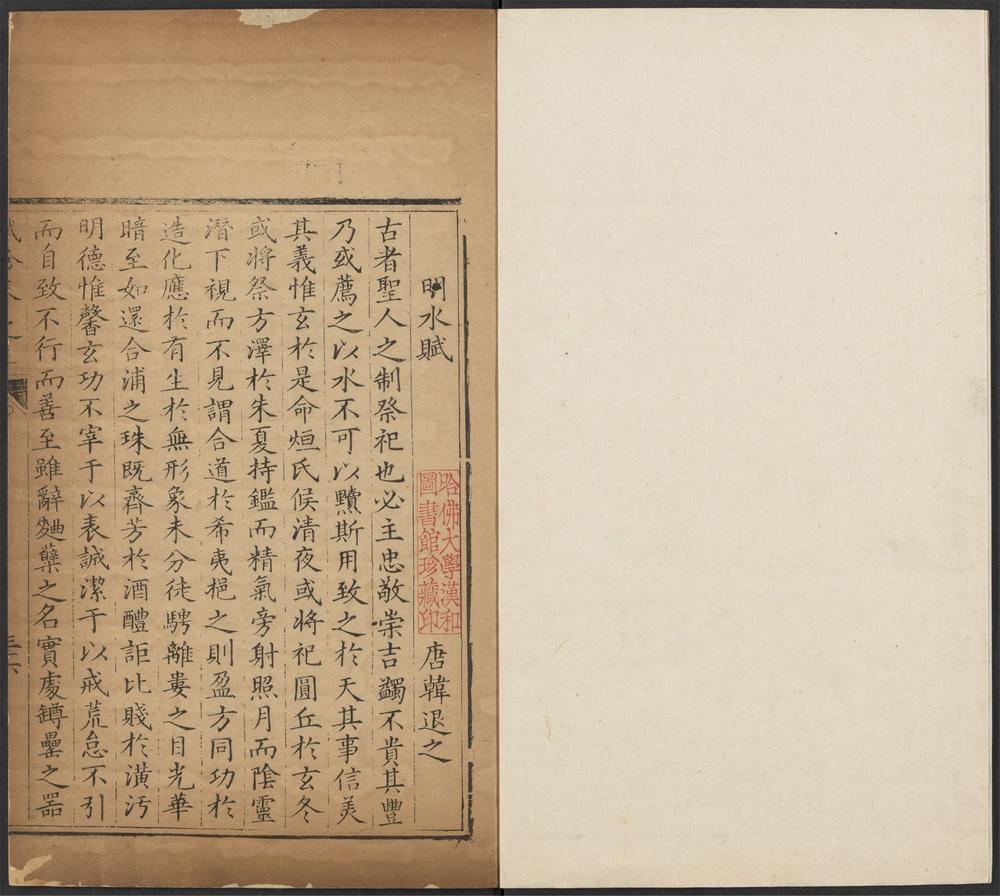 明水賦
唐韓退之
哈佛大學漢和
圖書館珍藏印
古者聖人之制祭祀也必主忠敬崇吉蠲不貴其豐
乃或薦之以水不可以黷斯用致之於天其事信美
其義惟玄於是命烜氏候清夜或將祀圓丘於玄冬
或將祭方澤於朱夏持鑑而精氣旁射照月而陰靈
潛下視而不見謂合道於希夷挹之則盈方同功於
造化應於有生於無形象未分徒騁離婁之目光華
暗至如還合浦之珠既齊芳於酒醴詎比賤於潢污
明德惟馨玄功不宰于以表誠潔于以戒荒怠不引
而自致不行而善至雖辭麯糵之名實處罇罍之器